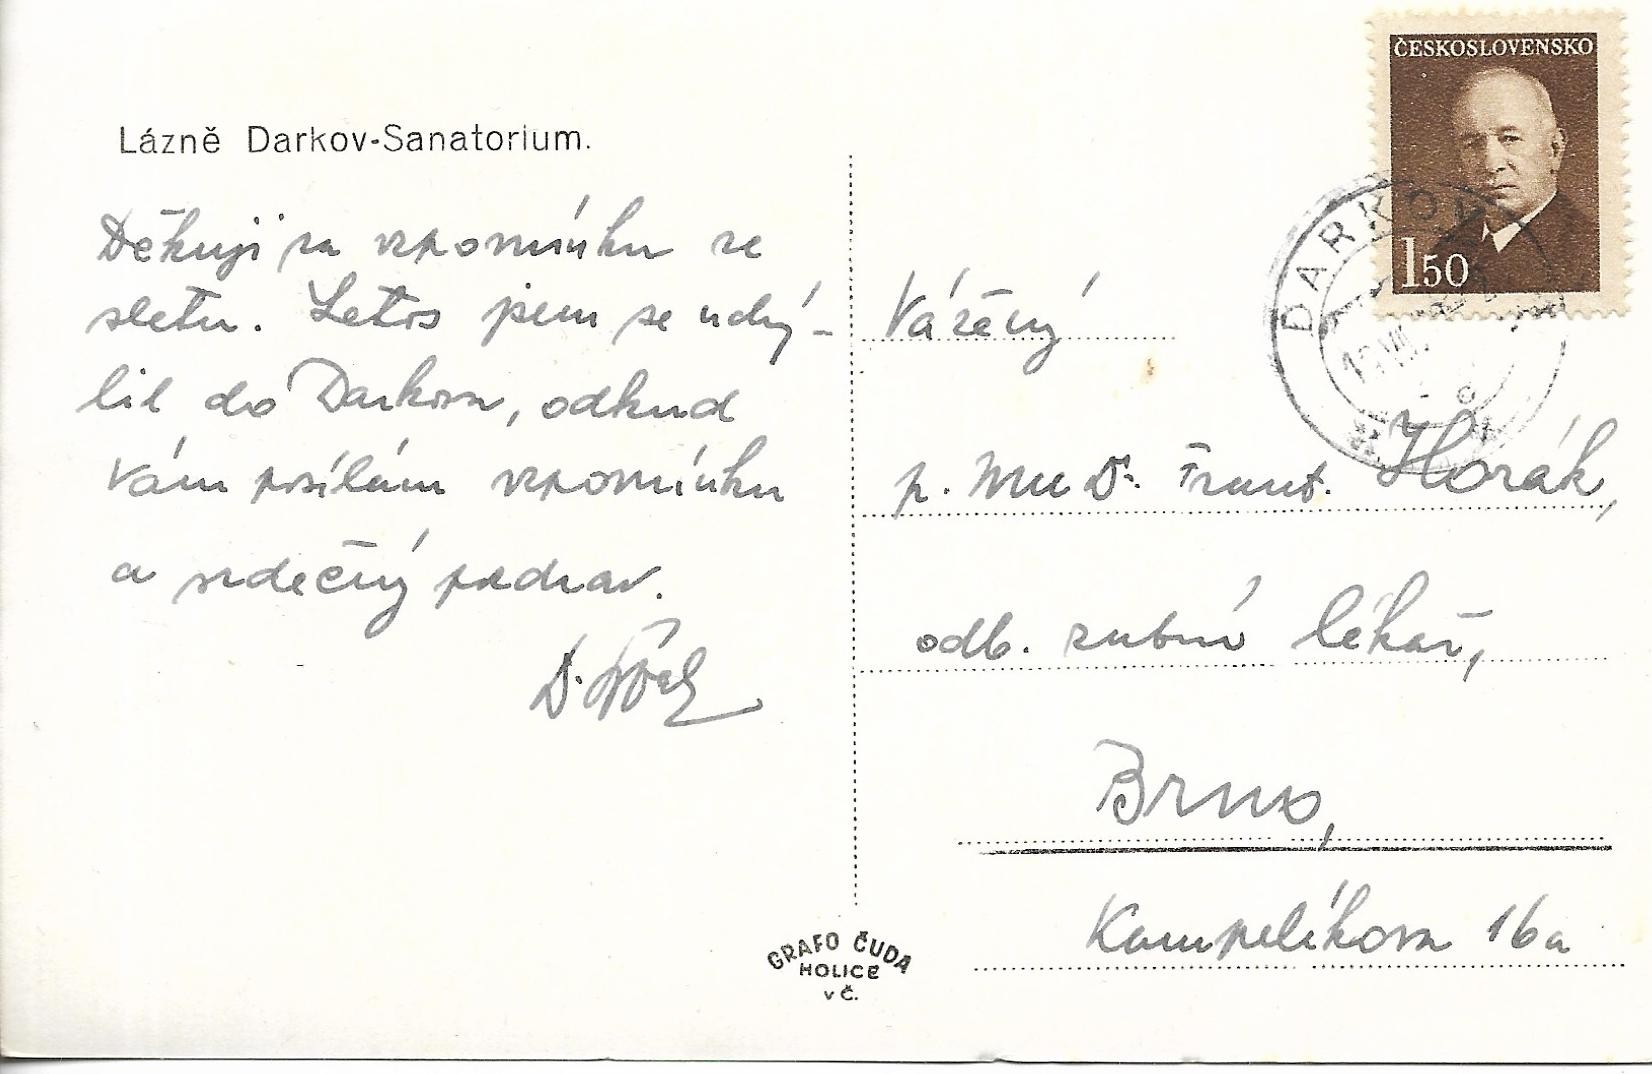 Lázně Darkov-Sanatorium.
Děkuji za vzpomínku ze
sletu. Letos jsem se uchý-
lil do Darkova, odkud
Vám posílám vzpomínku
a srdečný pozdrav.
D.
ČESKOSLOVENSKO
1 50
DARKOV
Vážený
p. MUDr. Frant. Horák,
odb. zubní lékař,
Brno,
Kampelíkova 16a
GRAFO ČUDA
HOLICE
v Č.